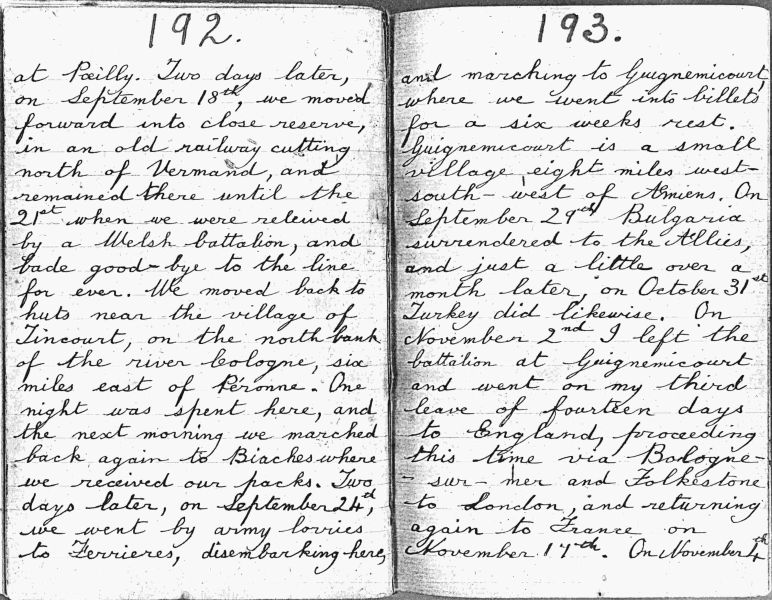 192.
at Pœilly. Two days later,
on September 18th, we moved
forward into close reserve,
in an old railway cutting
north of Vermand, and
remained there until the
21st when we were releived
by a Welsh battalion, and
bade good-bye to the line
for ever. We moved back to
huts near the village of
Tincourt, on the north bank
of the river Cologne, six
miles east of Péronne. One
night was spent here, and
the next morning we marched
back again to Biaches where
we received our packs. Two
days later, on September 24th,
we went by army lorries
to Ferrieres, disembarking here,
193.
and marching to Guignemicourt,
where we went into billets
for a six weeks rest.
Guignemicourt is a small
village eight miles west-
south-west of Amiens. On
September 29th Bulgaria
surrendered to the Allies,
and just a little over a
month later, on October 31st
Turkey did likewise. On
November 2nd I left the
battalion at Guignemicourt
and went on my third
leave of fourteen days
to England, proceeding
this time via Bologne-
-sur-mer and Folkestone
to London, and returning
again to France on
November 17th. On November 4th